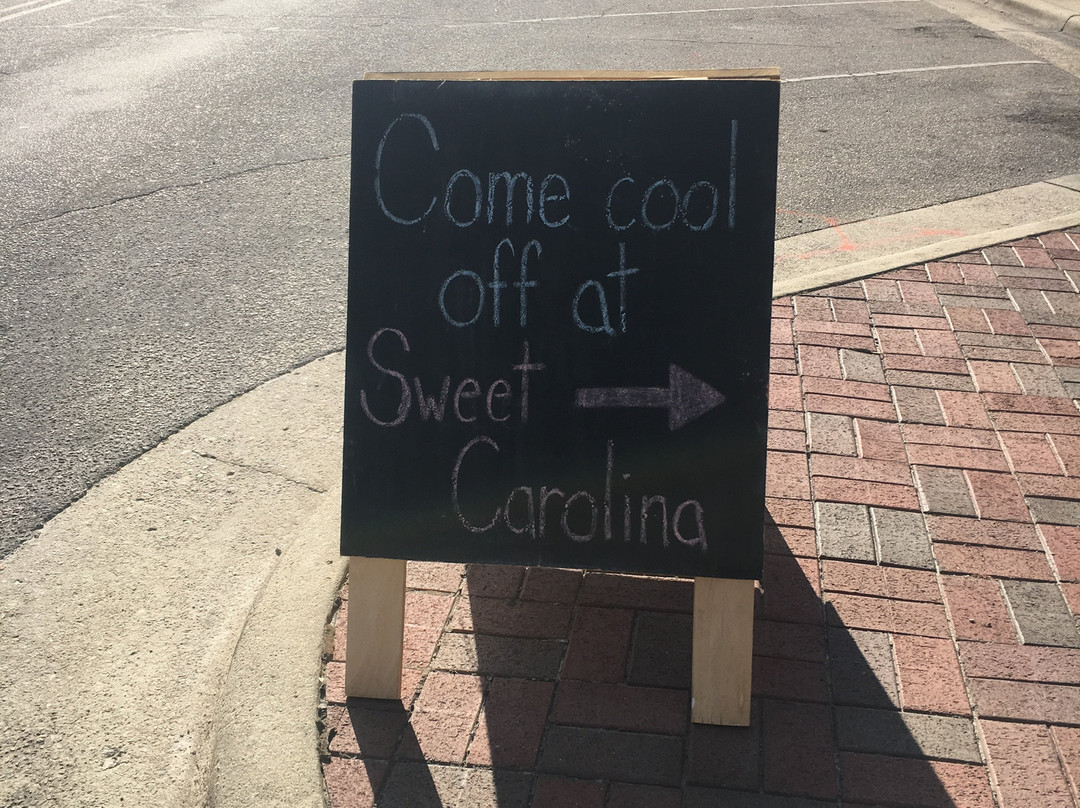 Come cool
off at
Sweet
Carolina